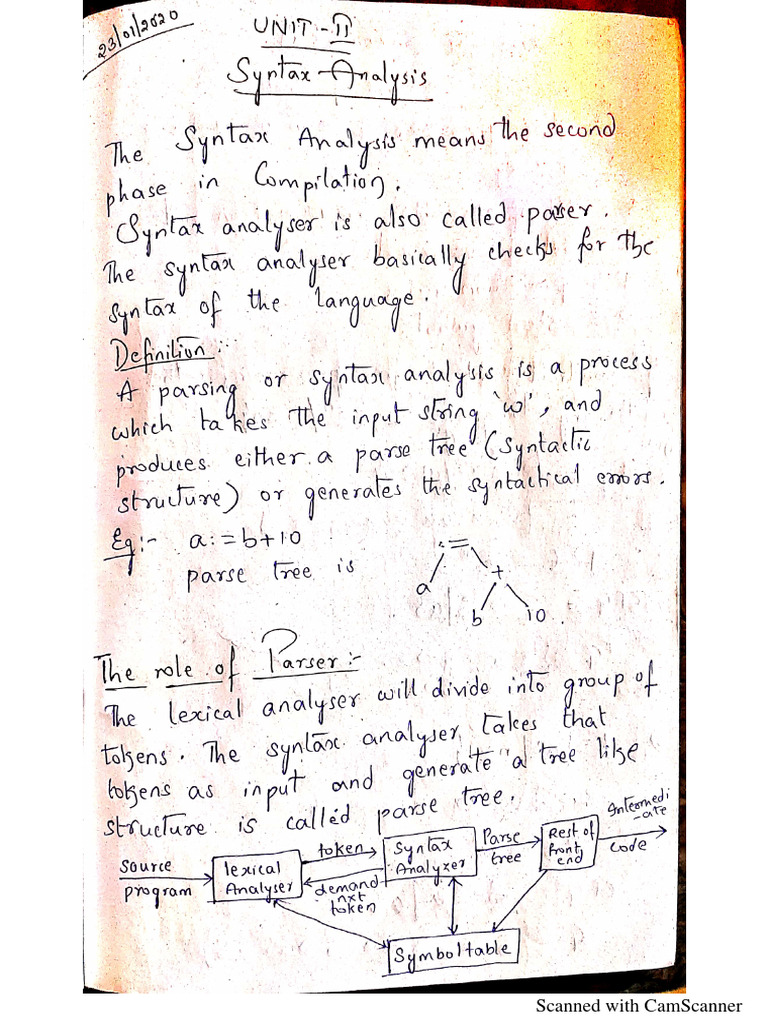 23/01/2020
UNIT-II
Syntax Analysis
The Syntax Analysis means the second
phase in Compilation.
Syntax analyser is also called parser.
The syntax analyser basically checks for the
syntax of the language.
Definition:-
A parsing or syntax analysis is a process
which takes the input string 'w', and
produces either a parse tree (syntactic
structure) or generates the syntactical errors.
Eg:- a:=b+10
parse tree is
:=
a +
b 10.
The role of Parser:-
The lexical analyser will divide into group of
tokens. The syntax analyser takes that
tokens as input and generate a tree like
structure is called parse tree.
Source program
lexical Analyser
token
demand nxt token
Syntax Analyzer
Parse tree
Rest of front end
Intermedi-ate code
Symboltable
Scanned with CamScanner